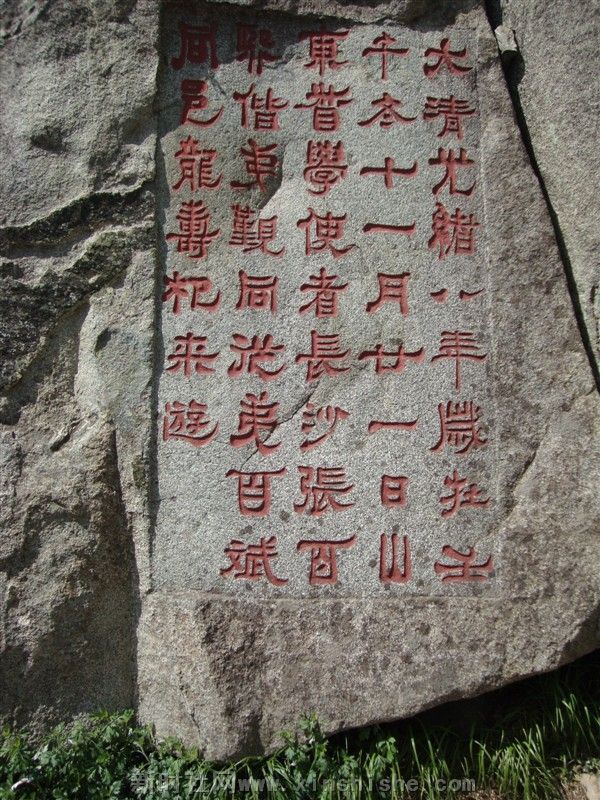 大清光緒八年歲在壬
午冬十一月廿一日山
東督學使者長沙張百
熙偕覲同從弟百斌
同邑龍壽杞來遊
新时社网www.xinshishe.com